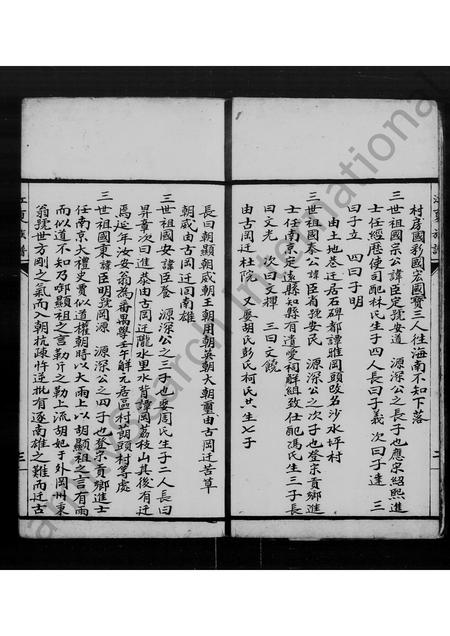 村房國彩國宏國寶三人往海南不知下落
三世祖國宗公諱臣定號安道 源深公之長子也應宋紹熙進
士任經歷使司配林氏生子四人長曰子義 次曰子達 三
曰子立 四曰子明
由土地巷迁居石碑都譚雅岡頭改名沙水坪村
三世祖國泰公諱臣省號安民 源深公之次子也登宗貢鄉進
士任南京定遠縣知縣有遺愛祠觧組致仕配馮氏生三子長
曰文光 次曰文樫 三曰文饒
由古岡迁杜院 又娶胡氏彭氏柯氏共生七子
江夏族譜
二
長曰朝顯朝宬朝王朝用朝英朝大朝璽由古岡迁苦草
朝宬由古岡迁南雄
三世祖國安諱臣養 源深公之三子也娶周氏生子二人長曰
昇童次曰進泰由古岡迁隴水里水背譚岡荔枝山其後有迁
馬延年汝安翁為番禺學壬午解元居區村茜頭村等處
三世祖國東諱臣明號岡源 源深公之四子也登宗貢鄉進士
任南京大禮史貴似道權朝時以大雨上以胡顯祖之言有雨
而似道不知乃卿顯祖之言勒斤之勒上流胡妃于外岡州東
翁號世方剛之氣而入朝杭疎忤逆批有逐南雄之難而迁古
江夏族譜
三